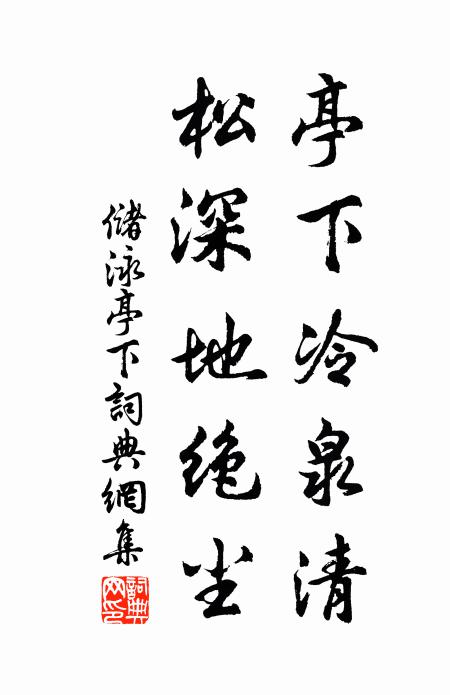 亭下冷泉清
松深地绝尘
儲泳亭下詞典網集
詞典网印